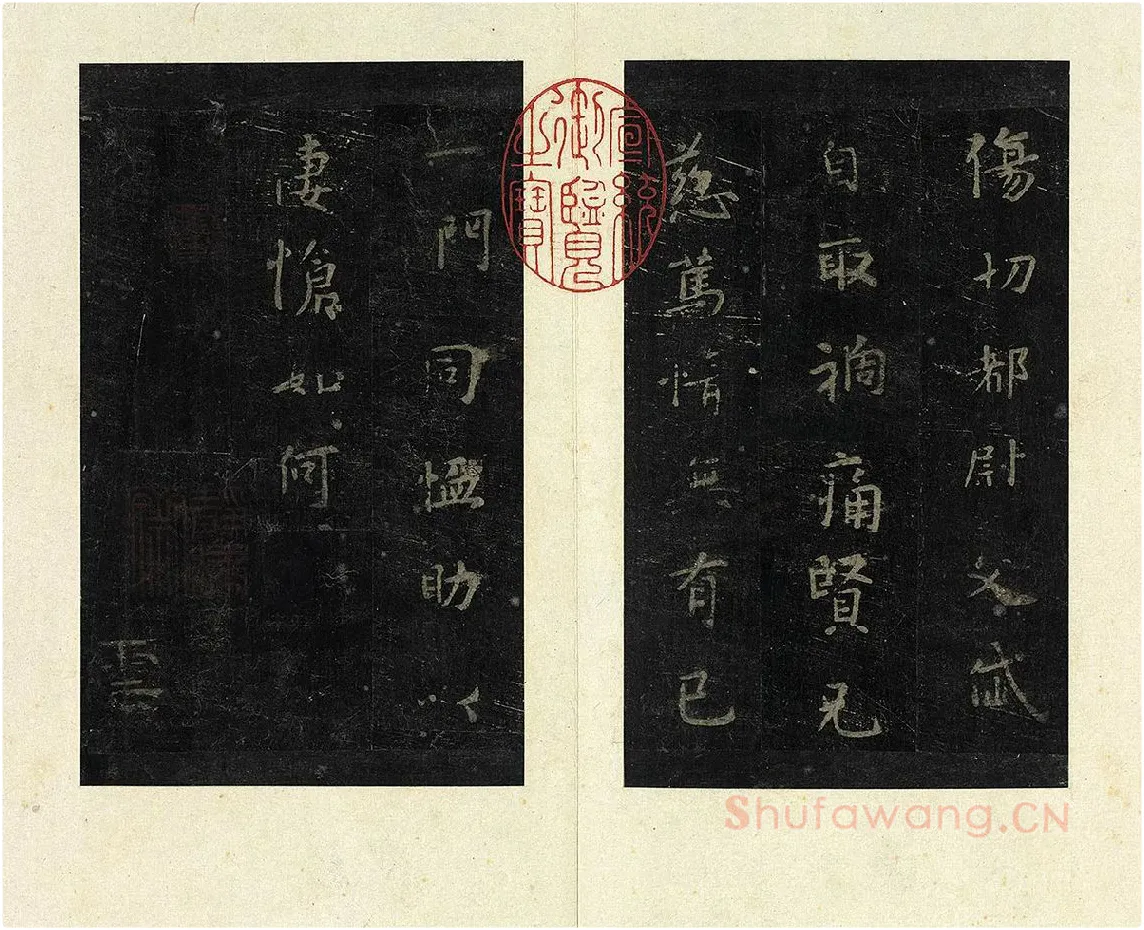 傷切都尉文武
自取禍痛賢兄
慈篤情無有已
宣統
御覽
之寶
一門同慍助以
淒愴如何
雲
Shufawang.CN